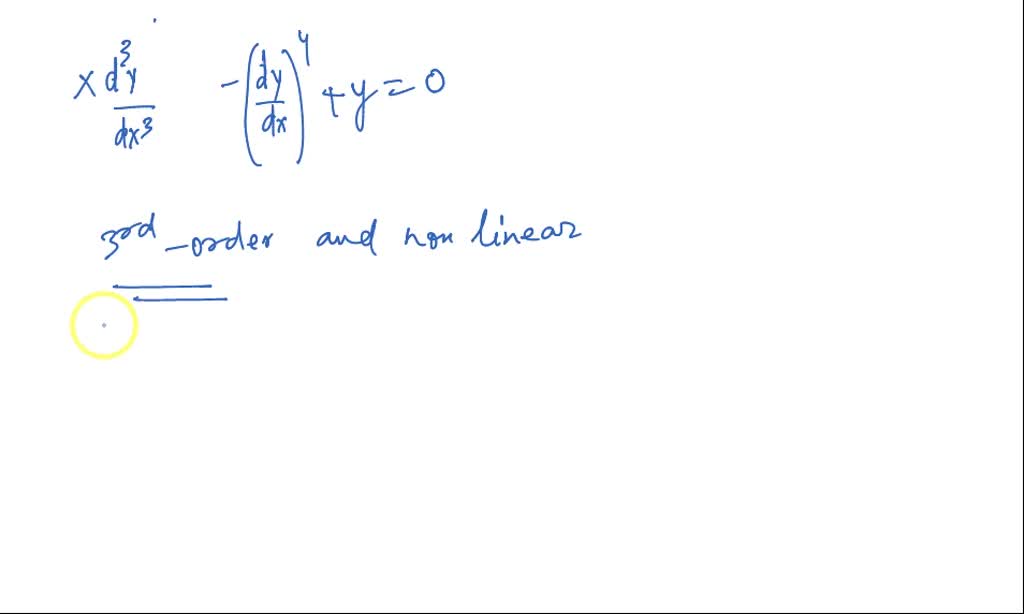 x d³y/dx³ - (dy/dx)⁴ + y = 0
3rd-order and non linear